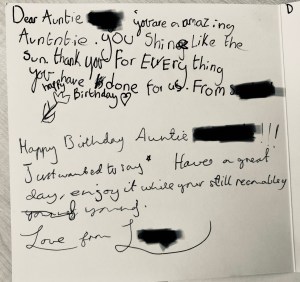 Dear Auntie you are an amazing
Auntntie. you Shine Like the
Sun thank you For EVERY thing
you have done for us. From
happy
Birthday
Happy Birthday Auntie !!!
Just wanted to say " Have a great
day, enjoy it while your still reenabley
young.
Love from L
D